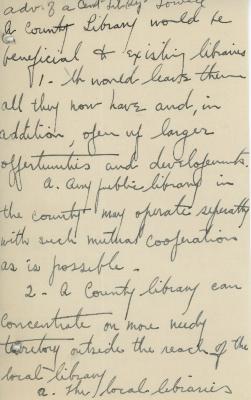 adv. of a Cent Library
A County Library would be
beneficial to existing libraries
1 - It would leave them
all they now have and, in
addition, open up larger
opportunities and developments.
a. any public library in
the county may operate separately
with such mutual cooperation
as is possible.
2 - A County library can
concentrate on more needy
territory outside the reach of the
local library
a. The local libraries